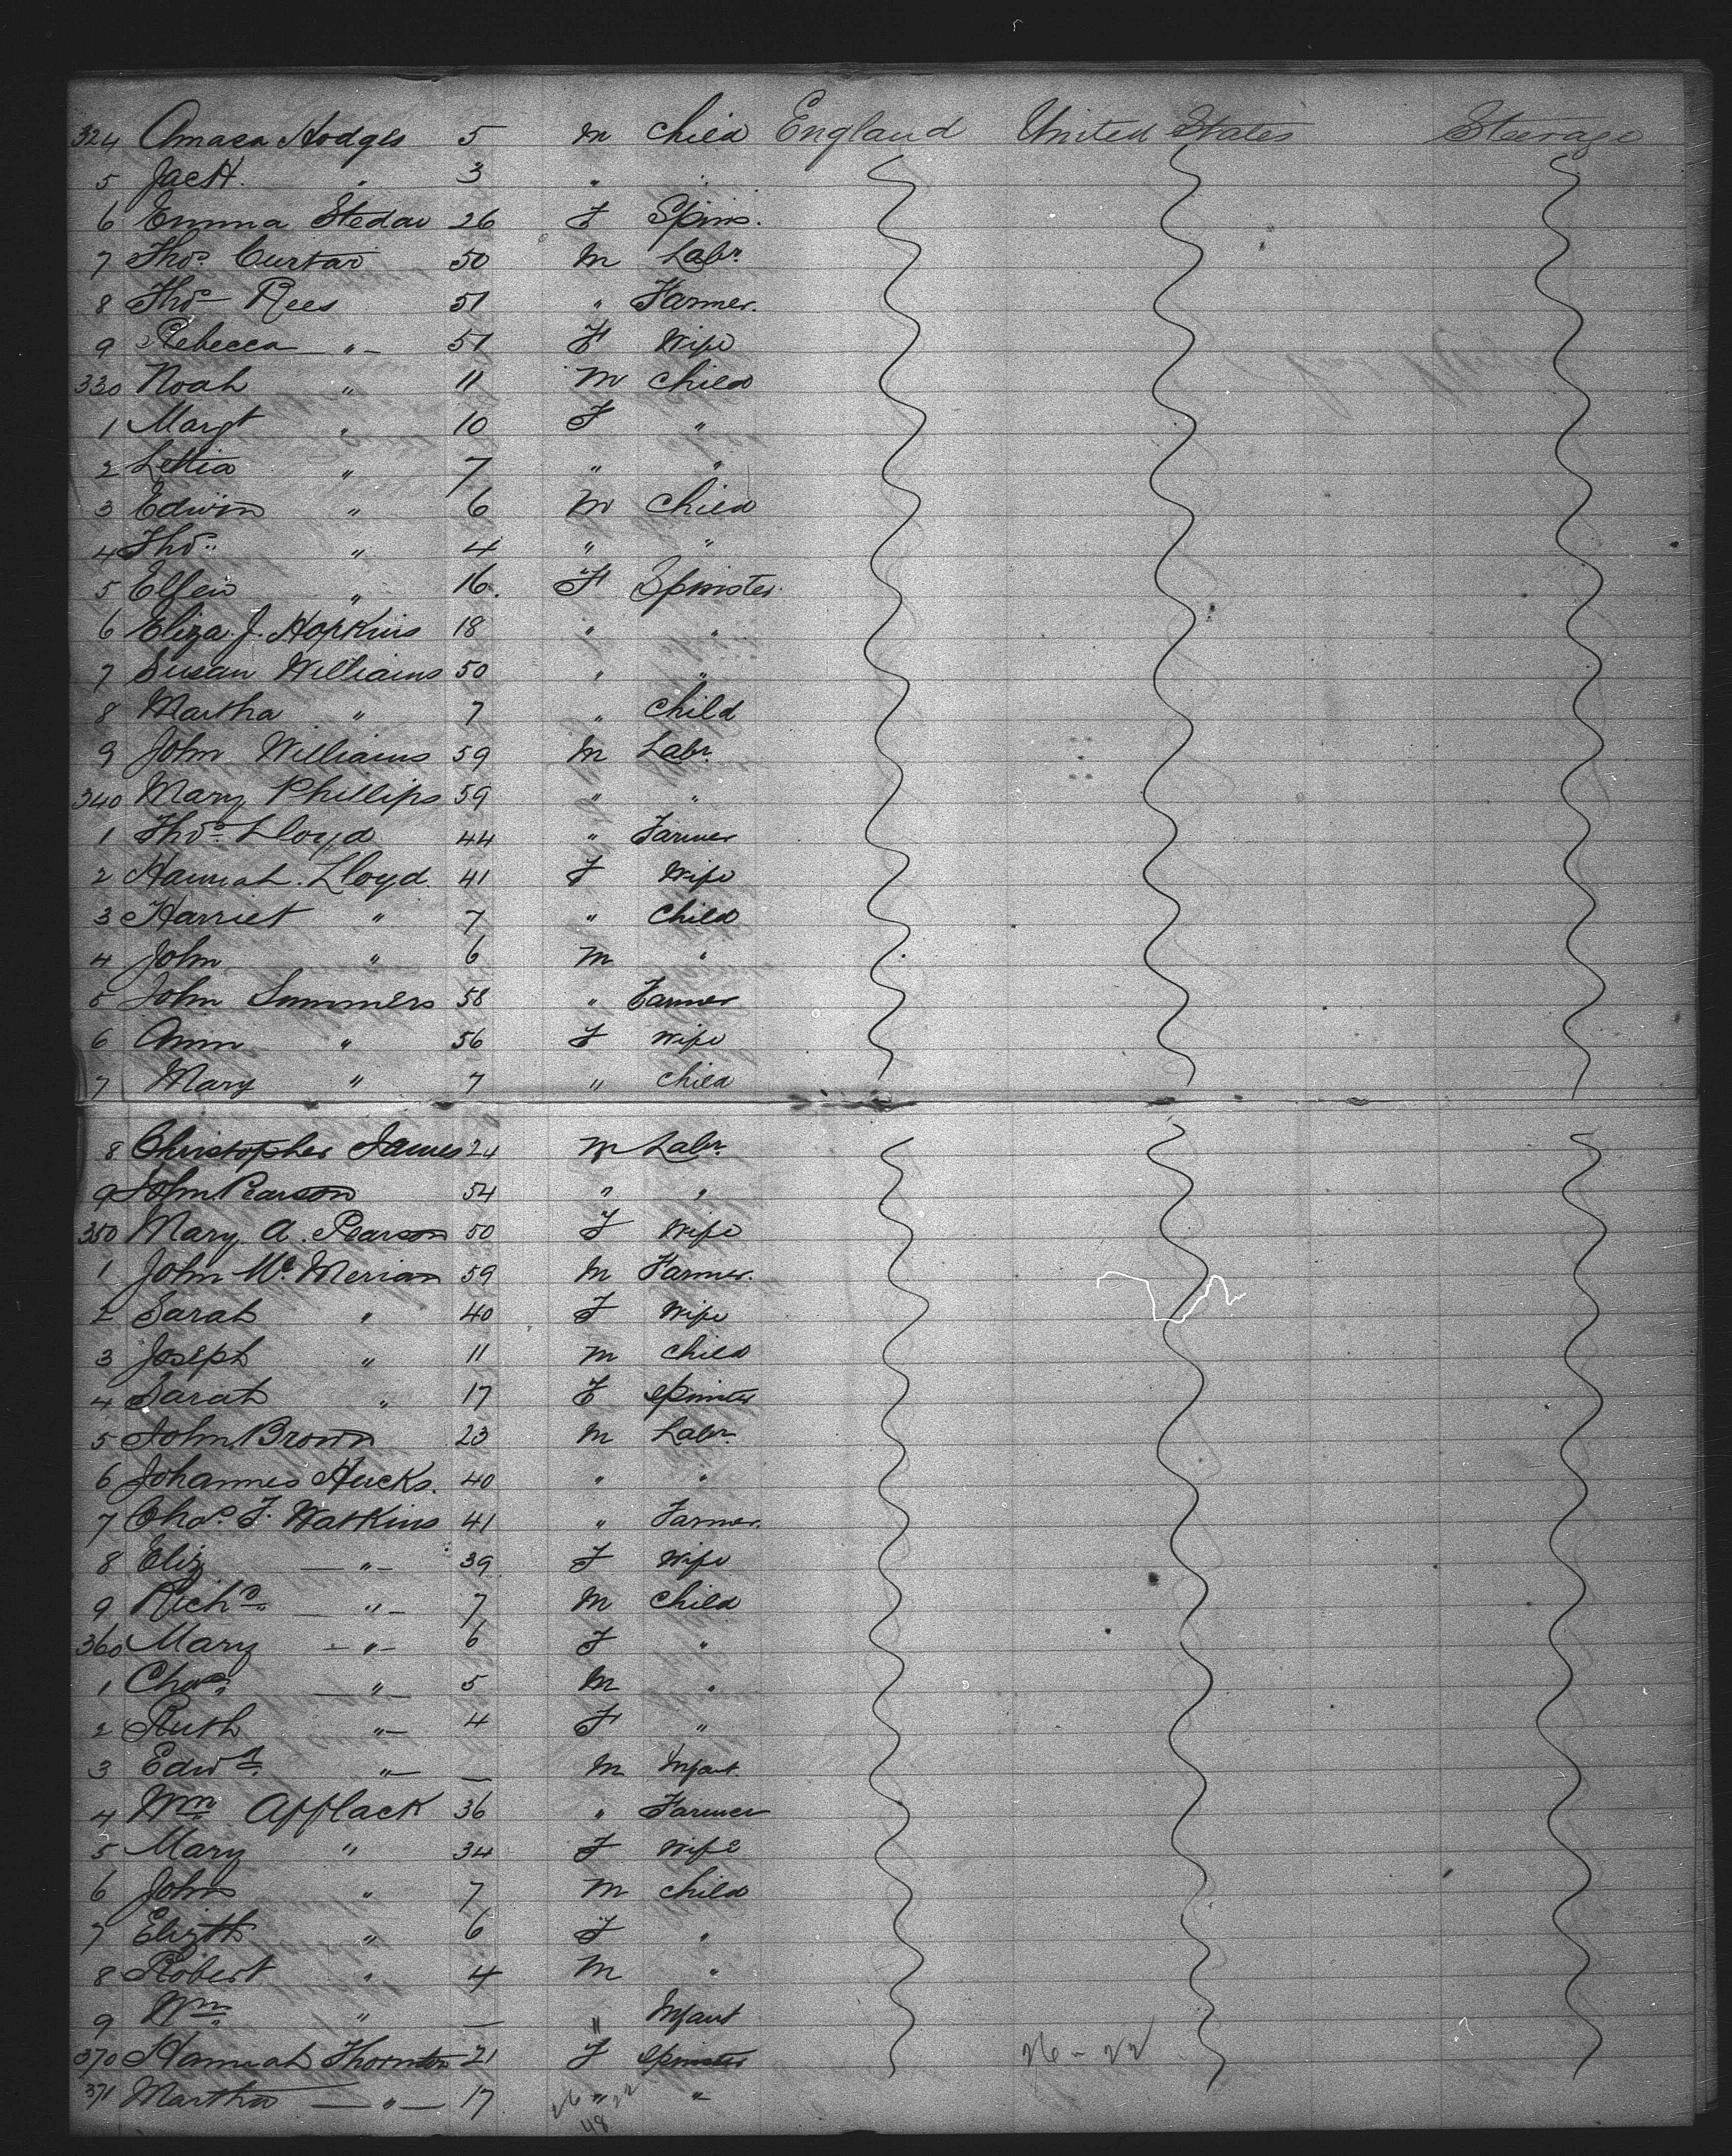 324 Amasa Hodges 5 M Child England United States Steerage
5 Jack " 3 "
6 Emma Stedar 26 F Spins.
7 Thos. 50 M Labr.
8 Thos Rees 51 " Farmer.
9 Rebecca " 51 F Wife
330 Noah " 11 M Child
1 Margt " 10 F "
2 Lettia " 7 " "
3 Edwin " 6 M Child
4 Thos. " 4 " "
5 Ellen " 16. F Spinster
6 Eliza J. Hopkins 18 " "
7 Susan Williams 50 " "
8 Martha " 7 " Child
9 John Williams 59 M Labr.
340 Mary Phillips 59 " "
1 Thos. Lloyd 44 " Farmer
2 Hannah. Lloyd. 41 F Wife
3 Harriet " 7 " Child
4 John " 6 M "
5 John Summers 58 " Farmer
6 Ann " 56 F Wife
7 Mary " 7 " Child
8 Christopher James 24 M Labr.
9 John Pearson 54 " "
350 Mary A. Pearson 50 F Wife
1 John Mc. 59 M Farmer.
2 Sarah " 40 F Wife
3 Joseph " 11 M Child
4 Sarah " 17 F Spinster
5 John Brown 23 M Labr.
6 Johannes Hucks. 40 " "
7 Chas. F. Watkins 41 " Farmer.
8 Eliz " 39 F Wife
9 Richd. " 7 M Child
360 Mary " 6 F "
1 Chas. " 5 M "
2 Ruth " 4 F "
3 Edwd. " — M Infant.
4 Wm Afflack 36 " Farmer
5 Mary " 34 F Wife
6 John " 7 M Child
7 Elizth " 6 F "
8 Robert " 4 M "
9 Wm " — " Infant
370 Hannah Thornton 21 F Spinster 26-22
371 Martha " 17 " "
26 22
48